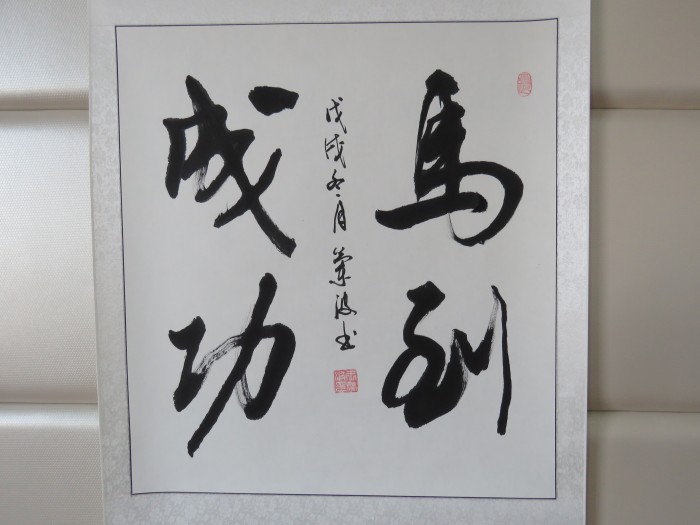 馬到
成功
戊戌冬月榮海書